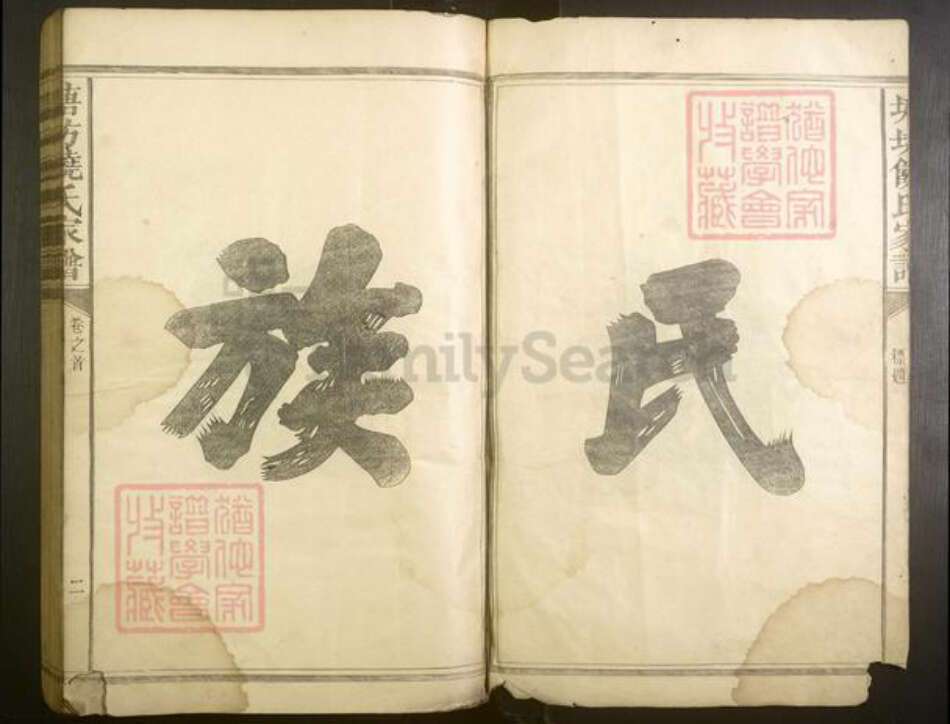 饒氏家譜
標題
猶他家
譜學會
收藏
氏
族
猶他家
譜學會
收藏
饒氏家譜
卷之首
二
FamilySearch